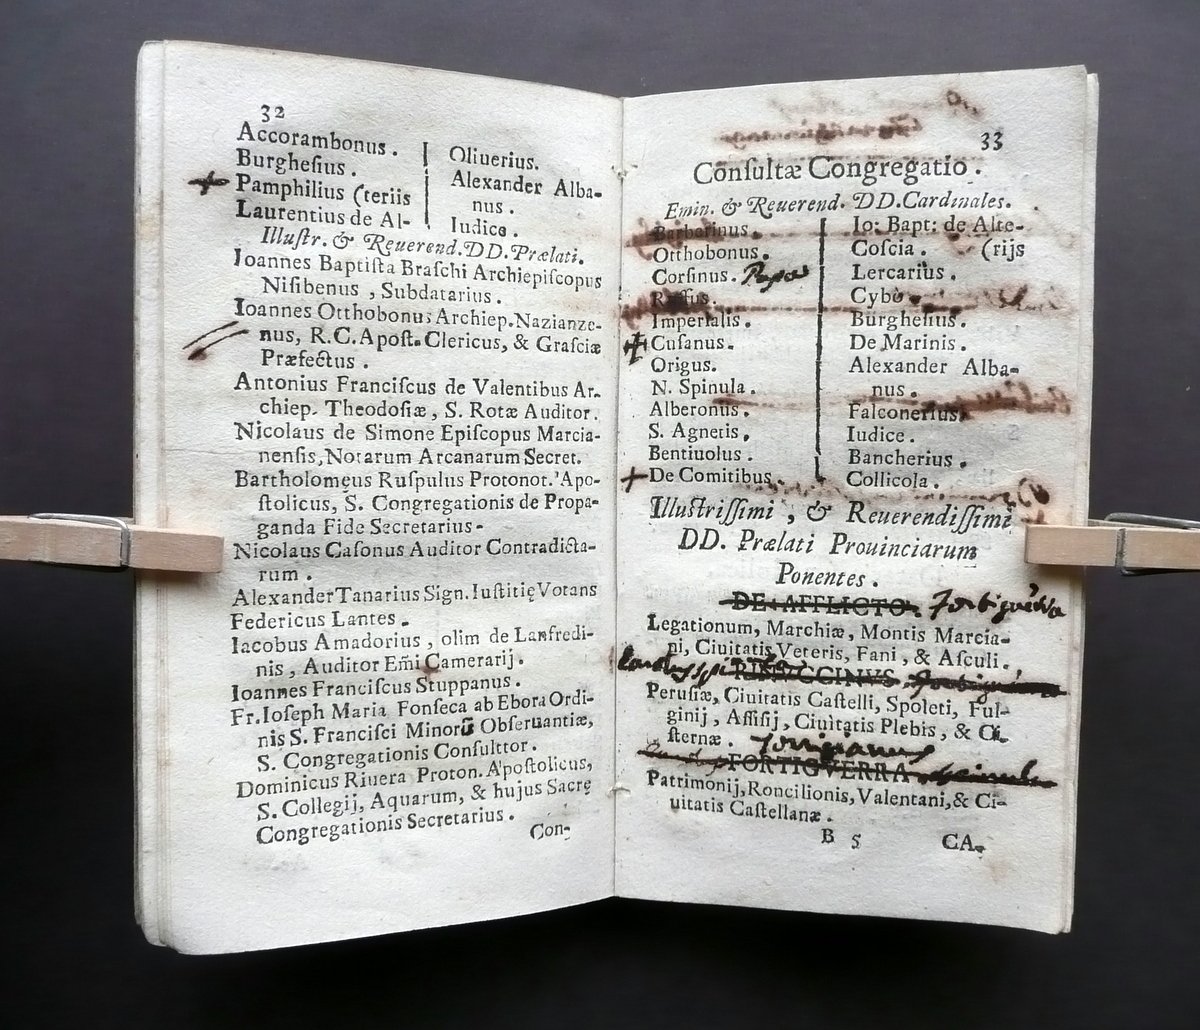 32
Accorambonus.
Burghesius.
+ Pamphilius (teriis
Laurentius de Al-
Oliuerius.
Alexander Alba-
nus.
Iudice.
Illustr. & Reuerend. DD. Prælati.
Ioannes Baptista Braschi Archiepiscopus
Nisibenus, Subdatarius.
Ioannes Otthobonus Archiep. Nazianze-
nus, R. C. Apost. Clericus, & Grasciæ
Præfectus.
Antonius Franciscus de Valentibus Ar-
chiep. Theodosiæ, S. Rotæ Auditor.
Nicolaus de Simone Episcopus Marcia-
nensis, Notarum Arcanarum Secret.
Bartholomęus Ruspulus Protonot. Apo-
stolicus, S. Congregationis de Propa-
ganda Fide Secretarius.
Nicolaus Casonus Auditor Contradicta-
rum.
Alexander Tanarius Sign. Iustitię Votans
Federicus Lantes.
Iacobus Amadorius, olim de Lanfredi-
nis, Auditor Em̃i Camerarij.
Ioannes Franciscus Stuppanus.
Fr. Ioseph Maria Fonseca ab Ebora Ordi-
nis S. Francisci Minorũ Obseruantiæ,
S. Congregationis Consulttor.
Dominicus Riuera Proton. Apostolicus,
S. Collegij, Aquarum, & hujus Sacrę
Congregationis Secretarius.
Con-
33
Consultæ Congregatio.
Emin. & Reuerend. DD. Cardinales.
Barberinus.
Otthobonus.
Corsinus. Papa
Ruffus.
Imperialis.
+ Cusanus.
Origus.
N. Spinula.
Alberonus.
S. Agnetis.
Bentiuolus.
+ De Comitibus.
Io: Bapt: de Alte-
Coscia. (rijs
Lercarius.
Cybò
Burghesius.
De Marinis.
Alexander Alba-
nus.
Falconerius.
Iudice.
Bancherius.
Collicola.
Illustrissimi, & Reuerendissimi
DD. Prælati Prouinciarum
Ponentes.
DE AFFLICTO.
Legationum, Marchiæ, Montis Marcia-
ni, Ciuitatis Veteris, Fani, & Asculi.
RINVCCINVS
Perusiæ, Ciuitatis Castelli, Spoleti, Ful-
ginij, Assisij, Ciuitatis Plebis, & Ci-
sternæ.
FORTIGVERRA
Patrimonij, Roncilionis, Valentani, & Ci-
uitatis Castellanæ.
B 5 CA-